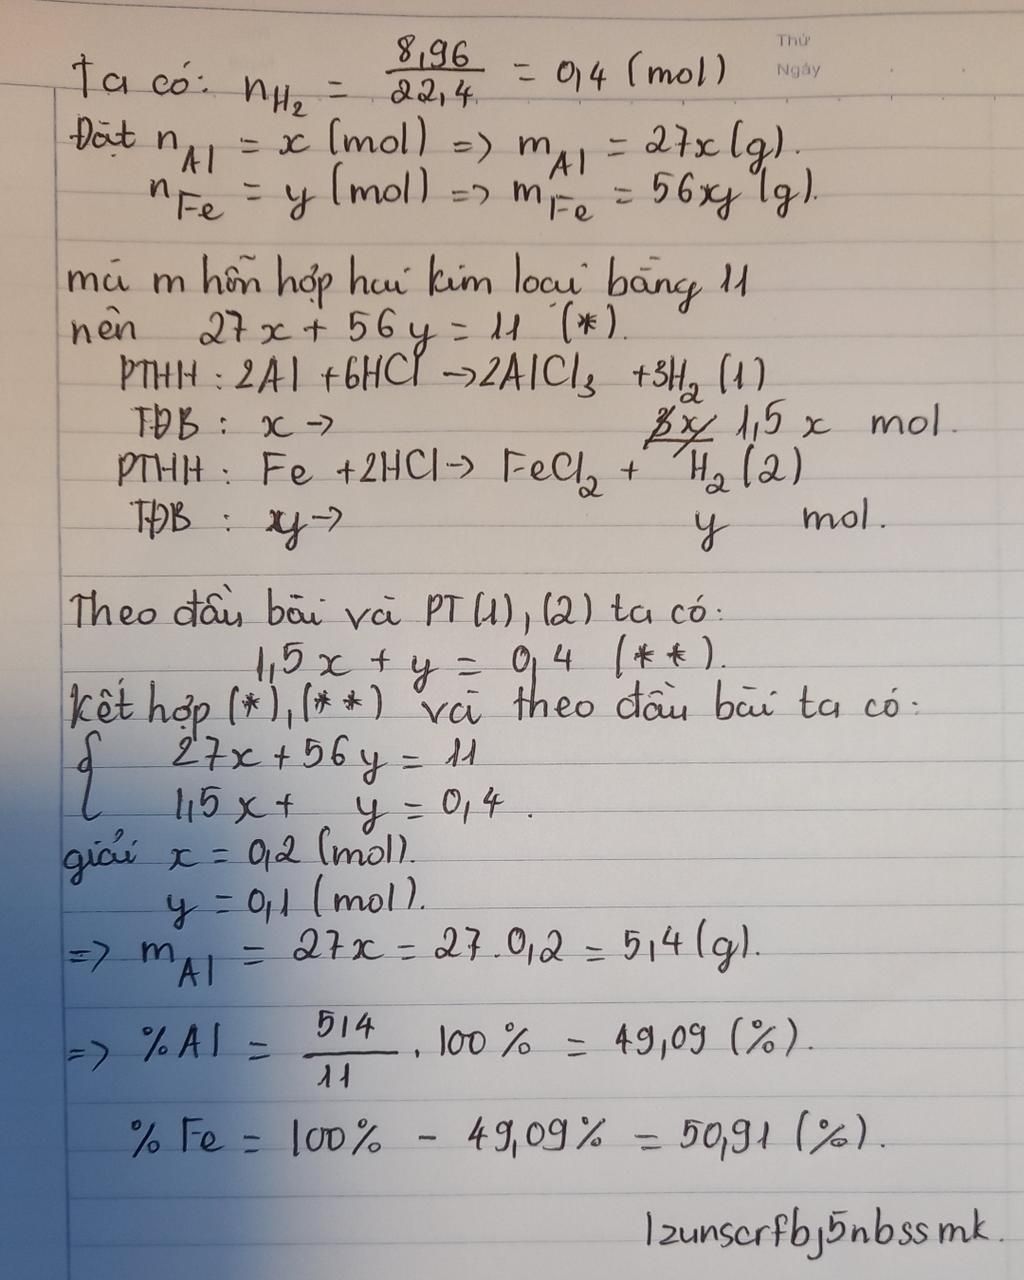 Thứ
Ngày
Ta có: nH₂ = 8,96/22,4 = 0,4 (mol)
Đặt nAl = x (mol) => mAl = 27x (g).
nFe = y (mol) => mFe = 56xy (g).
mà m hỗn hợp hai kim loại bằng 11
nên 27x + 56y = 11 (*).
PTHH : 2Al + 6HCl → 2AlCl₃ + 3H₂ (1)
TĐB : x → 1,5 x mol.
PTHH : Fe + 2HCl → FeCl₂ + H₂ (2)
TĐB : xy → y mol.
Theo đầu bài và PT (1), (2) ta có:
1,5x + y = 0,4 (**).
Kết hợp (*), (**) và theo đầu bài ta có:
{ 27x + 56y = 11
1,5x + y = 0,4.
giải x = 0,2 (mol).
y = 0,1 (mol).
=> mAl = 27x = 27.0,2 = 5,4 (g).
=> %Al = 5,4/11 . 100% = 49,09 (%).
%Fe = 100% - 49,09% = 50,91 (%).
1zunscrfbj5nbssmk.